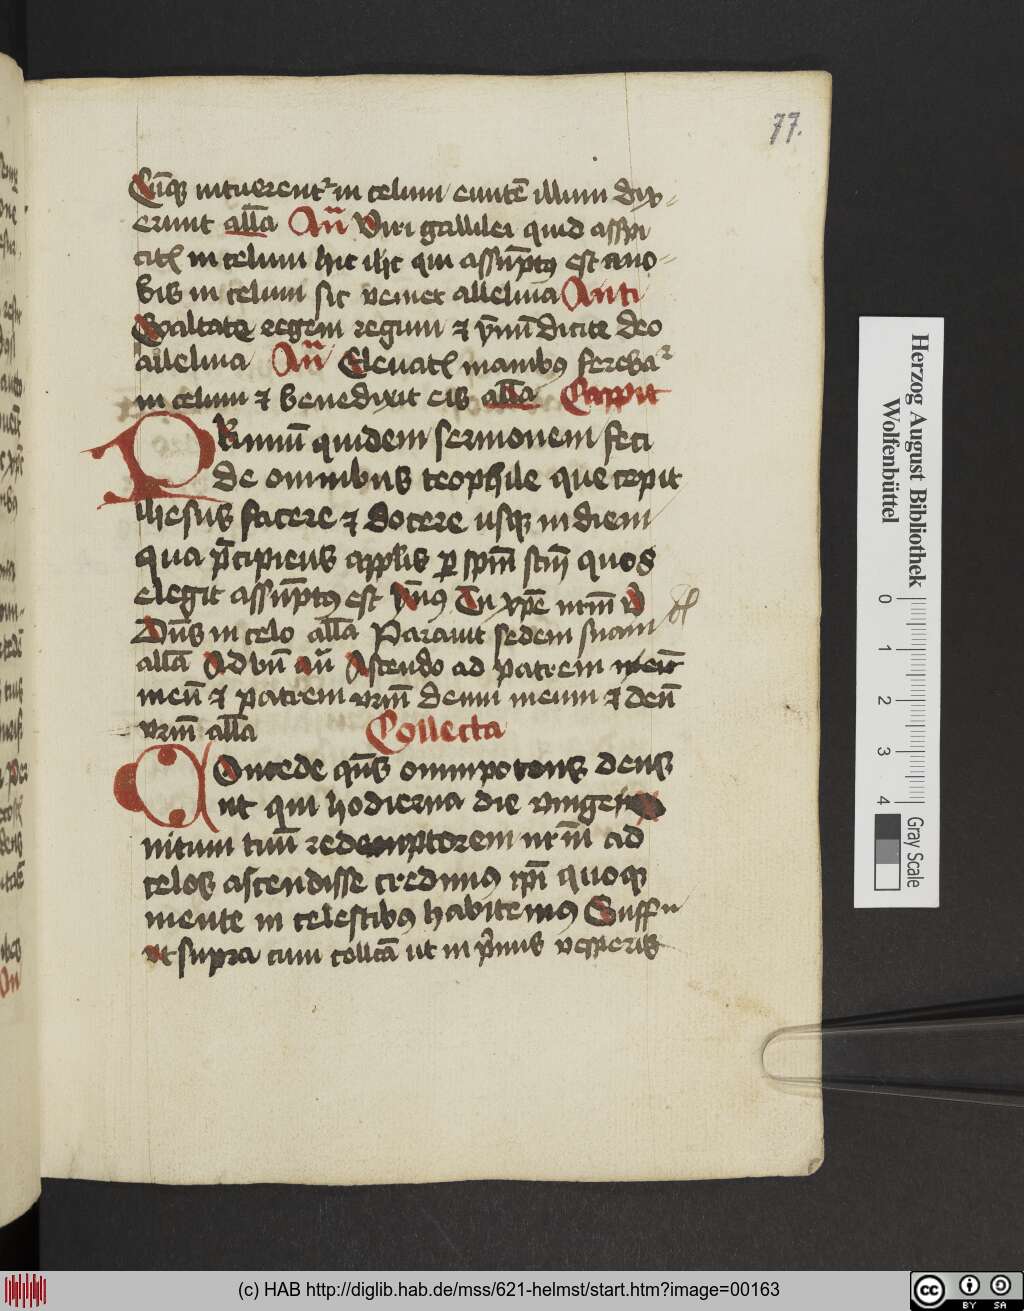 77.
Cūq̄ intuerentᷣ in celum euntē illum dix⸗
erunt all̄a An̄ Viri gallilei quid aſſpi
citꝭ in celum hic ihc qui aſſūptꝯ eſt a uo⸗
bis in celum ſic veniet alleluia Anti
Exaltate regem regum ⁊ ȳmū dicite deo
alleluia An̄ Eleuatꝭ manibꝯ ferebaᷣ
in celum ⁊ benedixit eis all̄a Cappit
PRimū quidem ſermonem feci
de omnibus teophile que cepit
iheſus facere ⁊ docere uſqꝫ in diem
qua p̄cipiens applis ꝑ ſpm̄ ſcm̄ quos
elegit aſſūptꝯ eſt Tu xpē
Dn̄s in celo all̄a Parauit ſedem ſuam
all̄a Ad bn̄ an̄ Aſcendo ad patrem meū
meū ⁊ patrem vrm̄ deum meum ⁊ deū
vrm̄ all̄a Collecta
COncede qs̄ omnipotens deus
ut qui hodierna die vnige
nitum tuū redemptorem nrm̄ ad
celos aſcendiſſe credimꝯ ipī quoqꝫ
mente in celeſtibꝯ habitemꝯ Suff
vt ſupra cum collcā ut in p̄mis veſperis
Herzog August Bibliothek
Wolfenbüttel
0 1 2 3 4
Gray Scale
(c) HAB http://diglib.hab.de/mss/621-helmst/start.htm?image=00163
cc BY SA